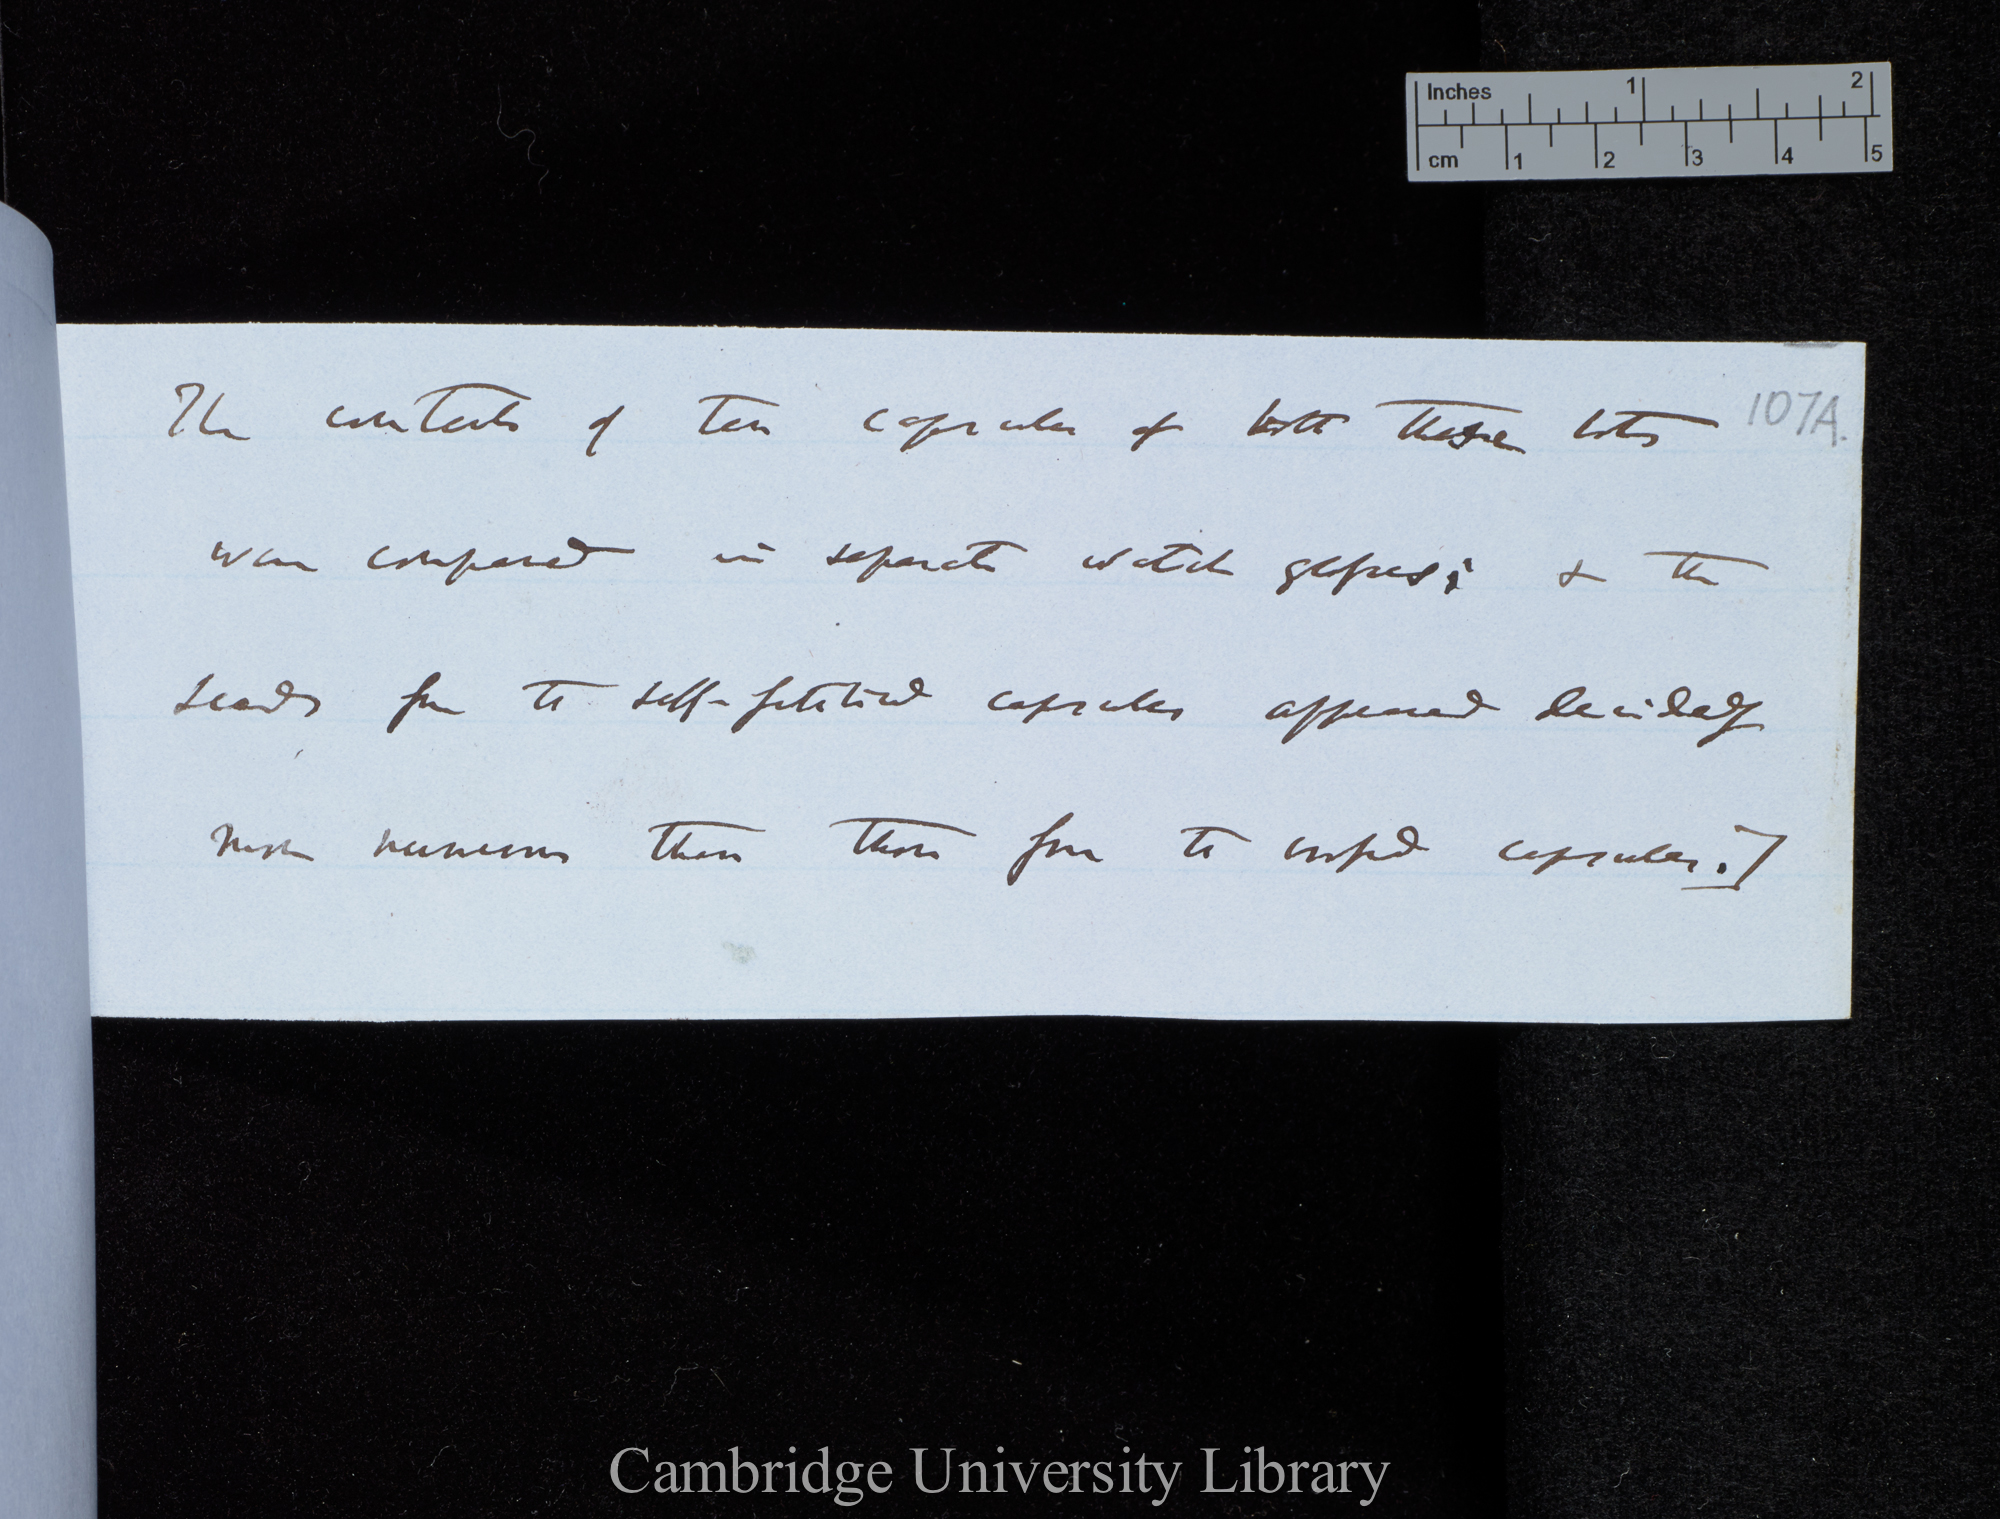 Inches 1 2
cm 1 2 3 4 5
107A.
The contents of ten capsules of both these lots
were compared in separate watch glasses; & the
seeds from the self-fertilised capsules appeared decidedly
more numerous than those from the crossed capsules.]
Cambridge University Library